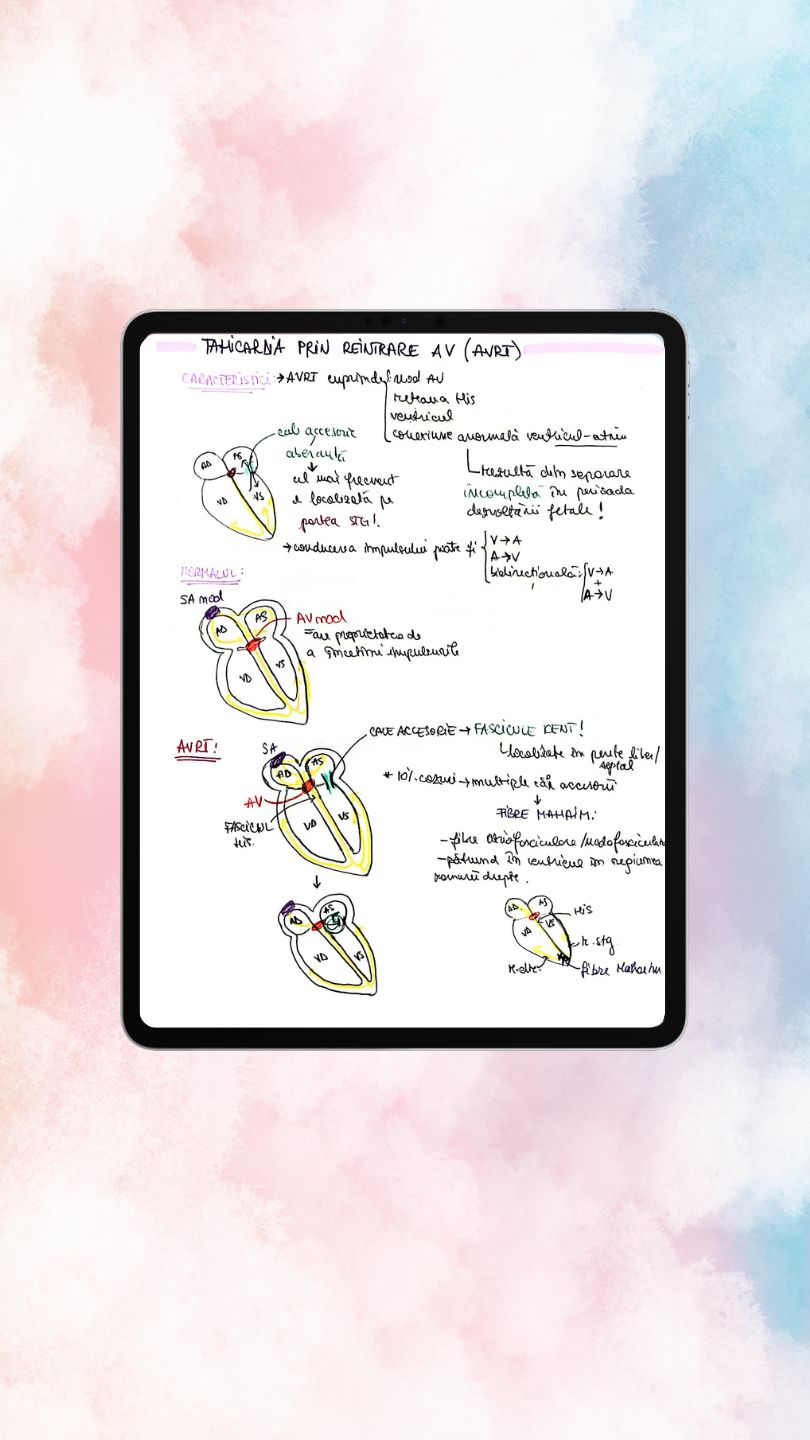 TAHICARDIA PRIN REINTRARE AV (AVRT)
CARACTERISTICI: → AVRT cuprinde nod AV
reteaua His
ventricul
conexiune anormală ventricul-atriu
rezultă din separare
incompletă în perioada
dezvoltării fetale!
cale accesorie
aberantă
↓
cel mai frecvent
e localizată pe
partea STG!
AD
AS
VD
VS
→ conducerea impulsului poate fi
V→A
A→V
bidirecțională:
V→A
+
A→V
NORMALUL:
SA nod
AD
AS
VD
VS
AV nod
= are proprietatea de
a încetini impulsurile
AVRT:
SA
AD
AS
VD
VS
AV
FASCICUL
His.
CALE ACCESORIE → FASCICULE KENT!
localizate în perete liber/
septal
* 10% cazuri → multiple căi accesorii
↓
FIBRE MAHAIM:
- fibre atriofasciculare/nodofasciculare
- pătrund în ventricul în regiunea
ramurii drepte.
↓
AD
AS
VD
VS
AD
AS
VD
VS
His
r. stg.
r. dr.
fibre Mahaim